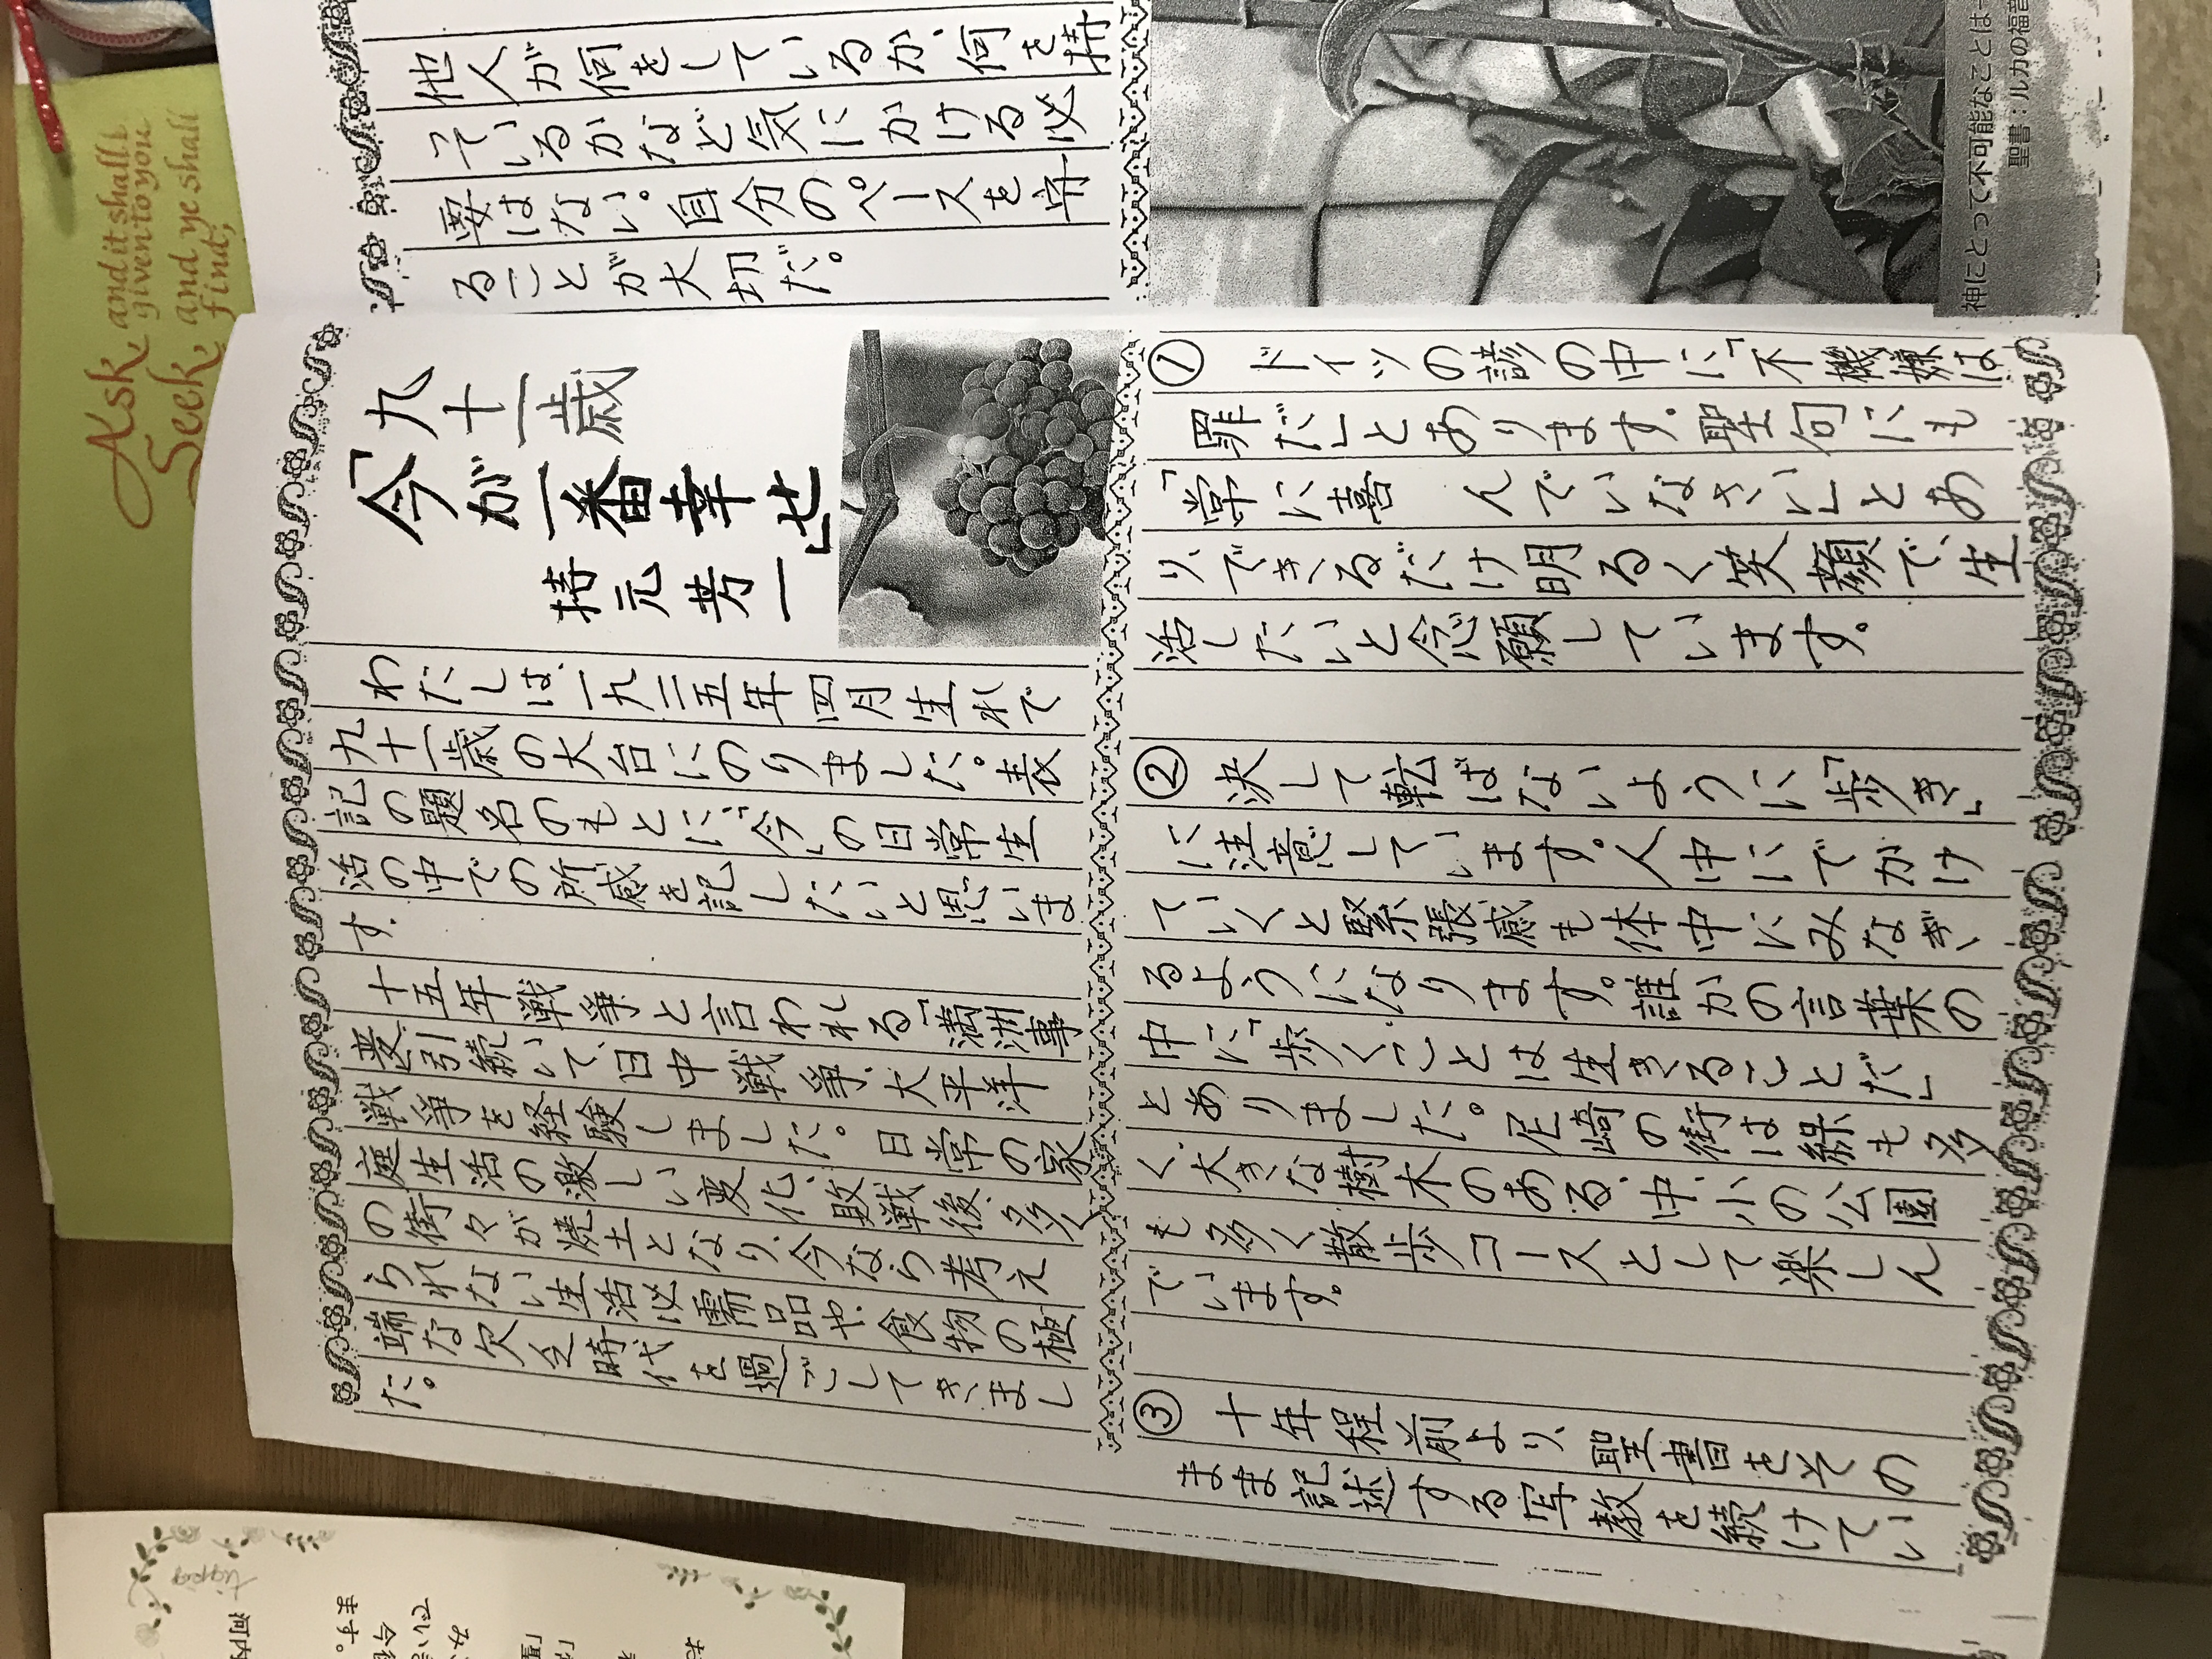 Ask, and it shall b
given to you
Seek, and ye shall
find;
他人が何をしているか、何を持
っているかなど気にかける必
要はない。自分のペースを守
ることが大切だ。
神にとって不可能なことは一
聖書:ルカの福音
九十一歳
「今が一番幸せ」
持元芳一
わたしは、一九二五年四月生れで
九十一歳の大台にのりました。表
記の題名のもとに、「今」の日常生
活の中での所感を記したいと思いま
す.
十五年戦争と言われる「満洲事
変」引続いて、日中戦争、大平洋
戦争を経験しました。日常の家
庭生活の激しい変化、敗戦後、多く
の街々が焼土となり、今なら考え
られない生活必需品や、食物の極
端な欠乏時代を過ごしてきまし
た。
① ドイツの諺の中に「不機嫌は
罪だ」とあります。聖句にも
「常に喜んでいなさい」とあ
り、できるだけ明るく笑顔で、生
活したいと念願しています。
② 決して転ばないように、「歩き」
に注意しています。人中にでかけ
ていくと緊張感も体中にみなぎ
るようになります。誰かの言葉の
中に、「歩くことは生きることだ」
とありました。尼崎の街は緑も多
く、大きな樹木のある、中、小の公園
も多く散歩コースとして楽しん
でいます。
③ 十年程前より、聖書をその
まま記述する写教を続けてい
河内
ます。